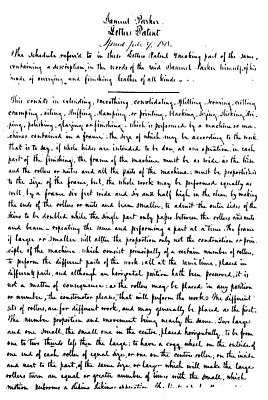 Samuel Parker.
Letters Patent
Issued July 9, 1808.
The schedule refered to in these Letters Patent & making part of the same,
containing a description, in the words of the said Samuel Parker himself, of his
mode of currying and finishing leather of all kinds
This consists in extending, smoothing, consolidating, splitting,
stuffing, stamping, or printing, blacking, sizing,
polishing, glazing or finishing, which is performed by a machine or ma-
chines contained in a frame: the size of which may be according to the work,
that is to say, if whole hides are intended to be done, at one operation, in each
part of the finishing, the frame of the machine must be as wide as the hide
and the rollers or and all the parts of the machine: must be proportioned
to the size of the frame, but, the whole work may be performed equally as
well, by a frame six feet wide and six and half high in the clear by making
the ends of the rollers or and beam smaller, to admit the outer sides of the
skins to be doubled while the single part only pases between the rollers
and beam - repeating the same and performing a part at a time. the frame
if larger or smaller, will alter the proportion only not the construction or prin-
ciple of the machine. which consist principally of a certain number of rollers,
to perform the different parts of the work all at the same time, placed in
different parts, and although an horizontal position hath been prefered, it is
not a matter of consequence: as the rollers may be placed in any position
or number, the constructor pleases, that will perform the work. The different
sets of rollers, are for different work, and may generally be placed as the first.
The number proportion and movement being nearly the same. Two large
and one small, the small one in the center, placed horizontally, to be from
one to two thirds less then the large: to have a cogg wheel on the outside of
one end of each roller of equal size, or one on the centre roller, on the inside
and next to the part, of the same size or larger which will make the large
rollers turn an equal or greater number of times with the small, which
motion